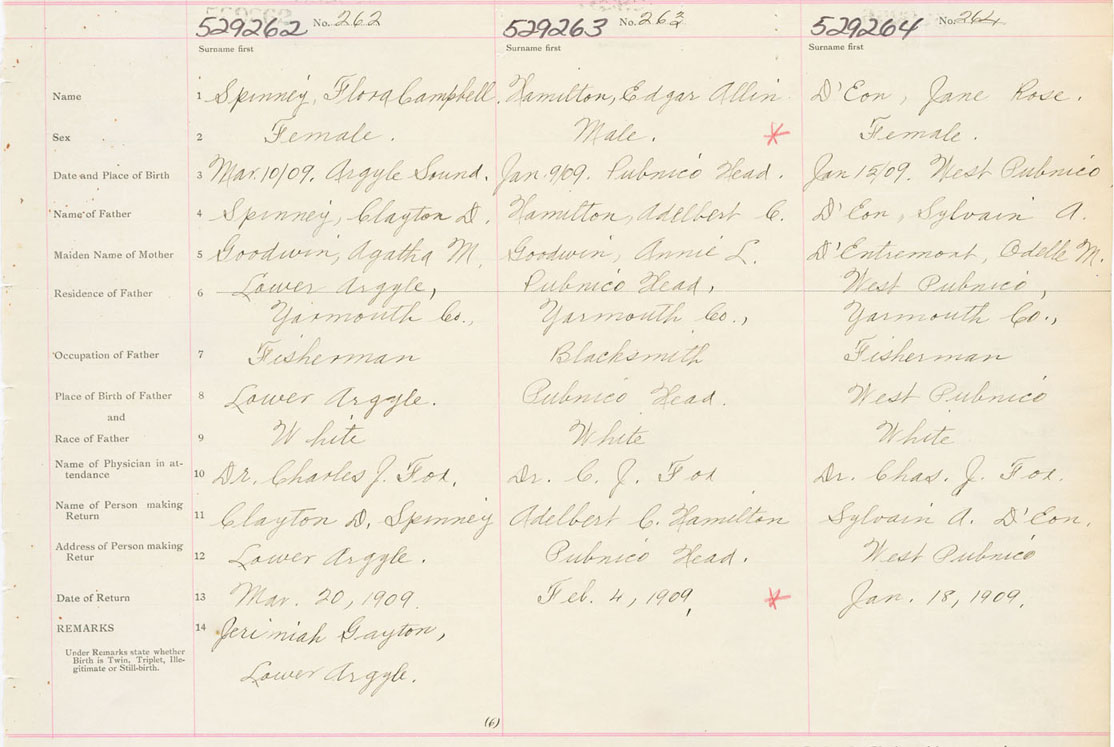 529262 No. 262 529263 No. 263 529264 No. 264
Surname first Surname first Surname first
Name 1 Spinney, Flora Campbell. Hamilton, Edgar Allin D'Eon, Jane Rose.
Sex 2 Female. Male. Female.
Date and Place of Birth 3 Mar. 10/09. Argyle Sound. Jan. 9/09. Pubnico Head. Jan 15/09. West Pubnico
Name of Father 4 Spinney, Clayton D. Hamilton, Adelbert C. D'Eon, Sylvain A.
Maiden Name of Mother 5 Goodwin, Agatha M. Goodwin, Annie L. D'Entremont, Odelle M.
Residence of Father 6 Lower Argyle, Pubnico Head, West Pubnico,
Yarmouth Co., Yarmouth Co., Yarmouth Co.,
Occupation of Father 7 Fisherman Blacksmith Fisherman
Place of Birth of Father 8 Lower Argyle. Pubnico Head. West Pubnico
and
Race of Father 9 White White White
Name of Physician in at-
tendance 10 Dr. Charles J. Fox. Dr. C. J. Fox Dr. Chas. J. Fox.
Name of Person making
Return 11 Clayton D. Spinney Adelbert C. Hamilton Sylvain A. D'Eon.
Address of Person making
Retur 12 Lower Argyle. Pubnico Head. West Pubnico
Date of Return 13 Mar. 20, 1909. Feb. 4, 1909. Jan. 18, 1909.
REMARKS 14 Jerimiah Gayton,
Under Remarks state whether
Birth is Twin, Triplet, Ille-
gitimate or Still-birth.
Lower Argyle.
(6)